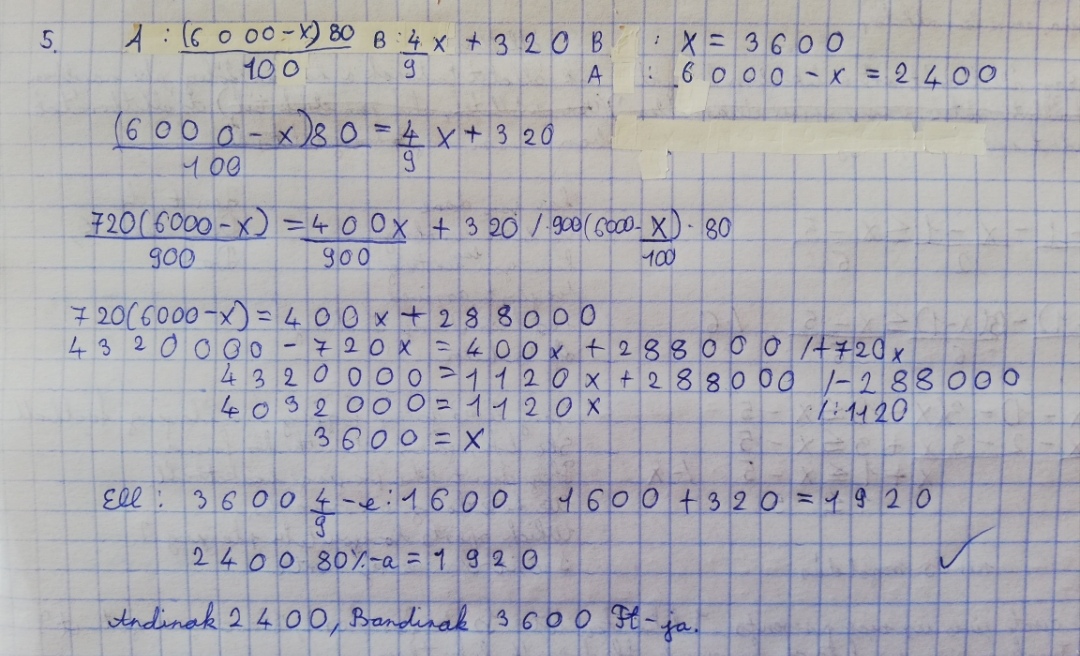 5. A : (6000-x)80/100 B : 4/9 x + 320 B : x = 3600
A : 6000 - x = 2400
(6000-x)80/100 = 4/9 x + 320
720(6000-x)/900 = 400x/900 + 320 /·900(6000-x/100)·80
720(6000-x) = 400x + 288000
4320000 - 720x = 400x + 288000 /+720x
4320000 = 1120x + 288000 /-288000
4032000 = 1120x /:1120
3600 = x
Ell : 3600 4/9-e : 1600 1600 + 320 = 1920
2400 80%-a = 1920 ✓
Andinak 2400, Bandinak 3600 Ft-ja.